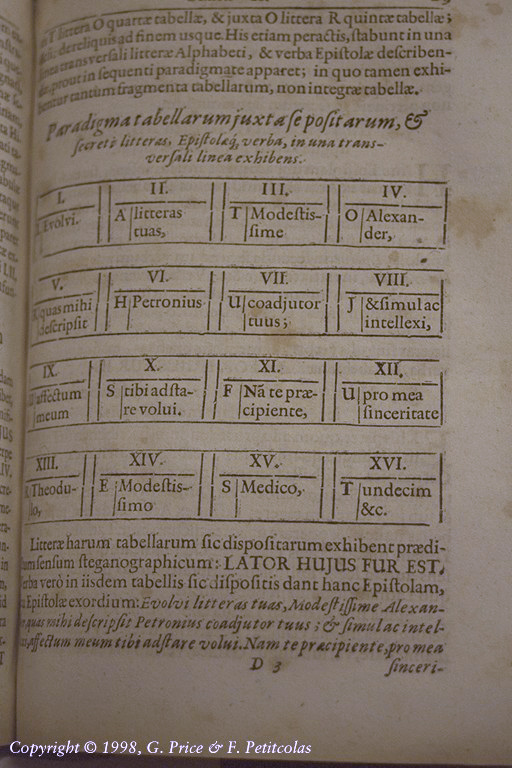 littera O quartæ tabellæ, & juxta O littera R quintæ tabellæ;
dereliquis ad finem usque. His etiam peractis, stabunt in una
linea transversali litteræ Alphabeti, & verba Epistolæ describen-
prout in sequenti paradigmate apparet; in quo tamen exhi-
bentur tantum fragmenta tabellarum, non integræ tabellæ.
Paradigma tabellarum juxta se positarum, &
secretè litteras, Epistolæq́, verba, in una trans-
versali linea exhibens.
I. II. III. IV.
Evolvi. A litteras T Modestis- O Alexan-
tuas, sime der,
V. VI. VII. VIII.
quas mihi H Petronius U coadjutor J & simul ac
descripsit tuus; intellexi,
IX. X. XI. XII.
affectum S tibi adsta- F Nã te præ- U pro mea
meum re volui. cipiente, sinceritate
XIII. XIV. XV. XVI.
Theodu- E Modestis- S Medico, T undecim
lo, simo &c.
Litteræ harum tabellarum sic dispositarum exhibent prædi-
sensum steganographicum: LATOR HUJUS FUR EST,
verò in iisdem tabellis sic dispositis dant hanc Epistolam,
Epistolæ exordium: Evolvi litteras tuas, Modestissime Alexan-
quas mihi descripsit Petronius coadjutor tuus; & simul ac intel-
affectum meum tibi adstare volui. Nam te præcipiente, pro mea
D 3 sinceri-
Copyright © 1998, G. Price & F. Petitcolas